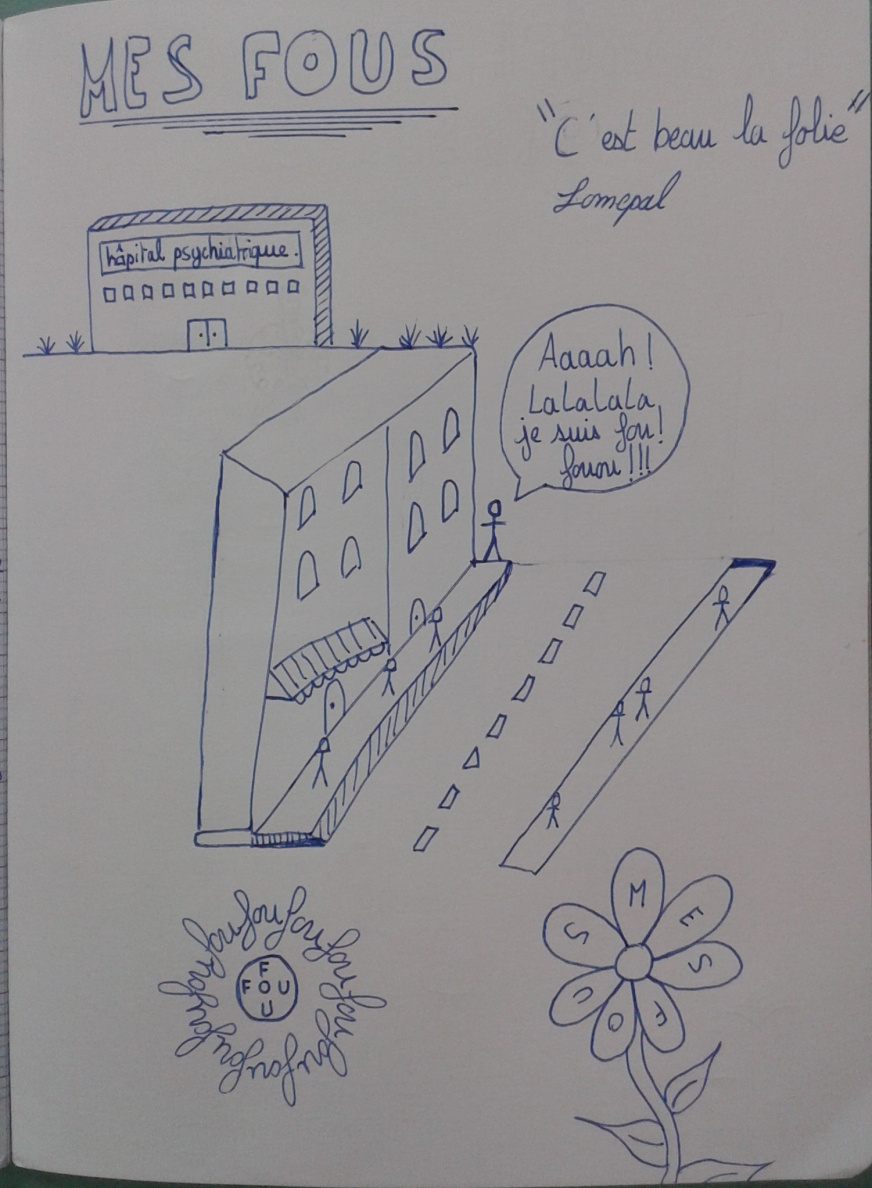 MES FOUS
"C'est beau la folie"
Lomepal
hôpital psychiatrique.
Aaaah !
LaLaLaLa,
je suis fou!
fouou !!!
fou fou fou fou fou fou fou fou fou fou fou fou
F
FOU
U
MES FOUS